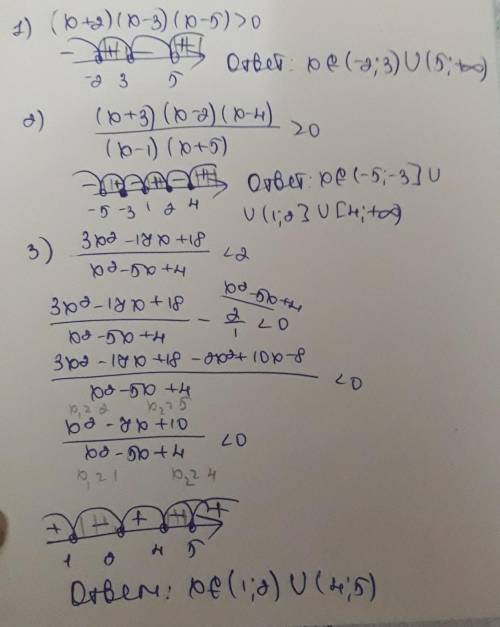 1) (x+2)(x-3)(x-5)>0
- + - +
-2 3 5 Ответ: x∈(-2;3)∪(5;+∞)
2) (x+3)(x-2)(x-4)
(x-1)(x+5) ≥0
- + - + - +
-5 -3 1 2 4 Ответ: x∈(-5;-3]∪
∪(1;2]∪[4;+∞)
3) 3x2-12x+18
x2-5x+4 <2
x2-5x+4
3x2-12x+18 - 2 <0
x2-5x+4 1
3x2-12x+18-2x2+10x-8
x2-5x+4 <0
x1=2 x2=5
x2-7x+10
x2-5x+4 <0
x1=1 x2=4
+ + +
1 2 4 5
Ответ: x∈(1;2)∪(4;5)